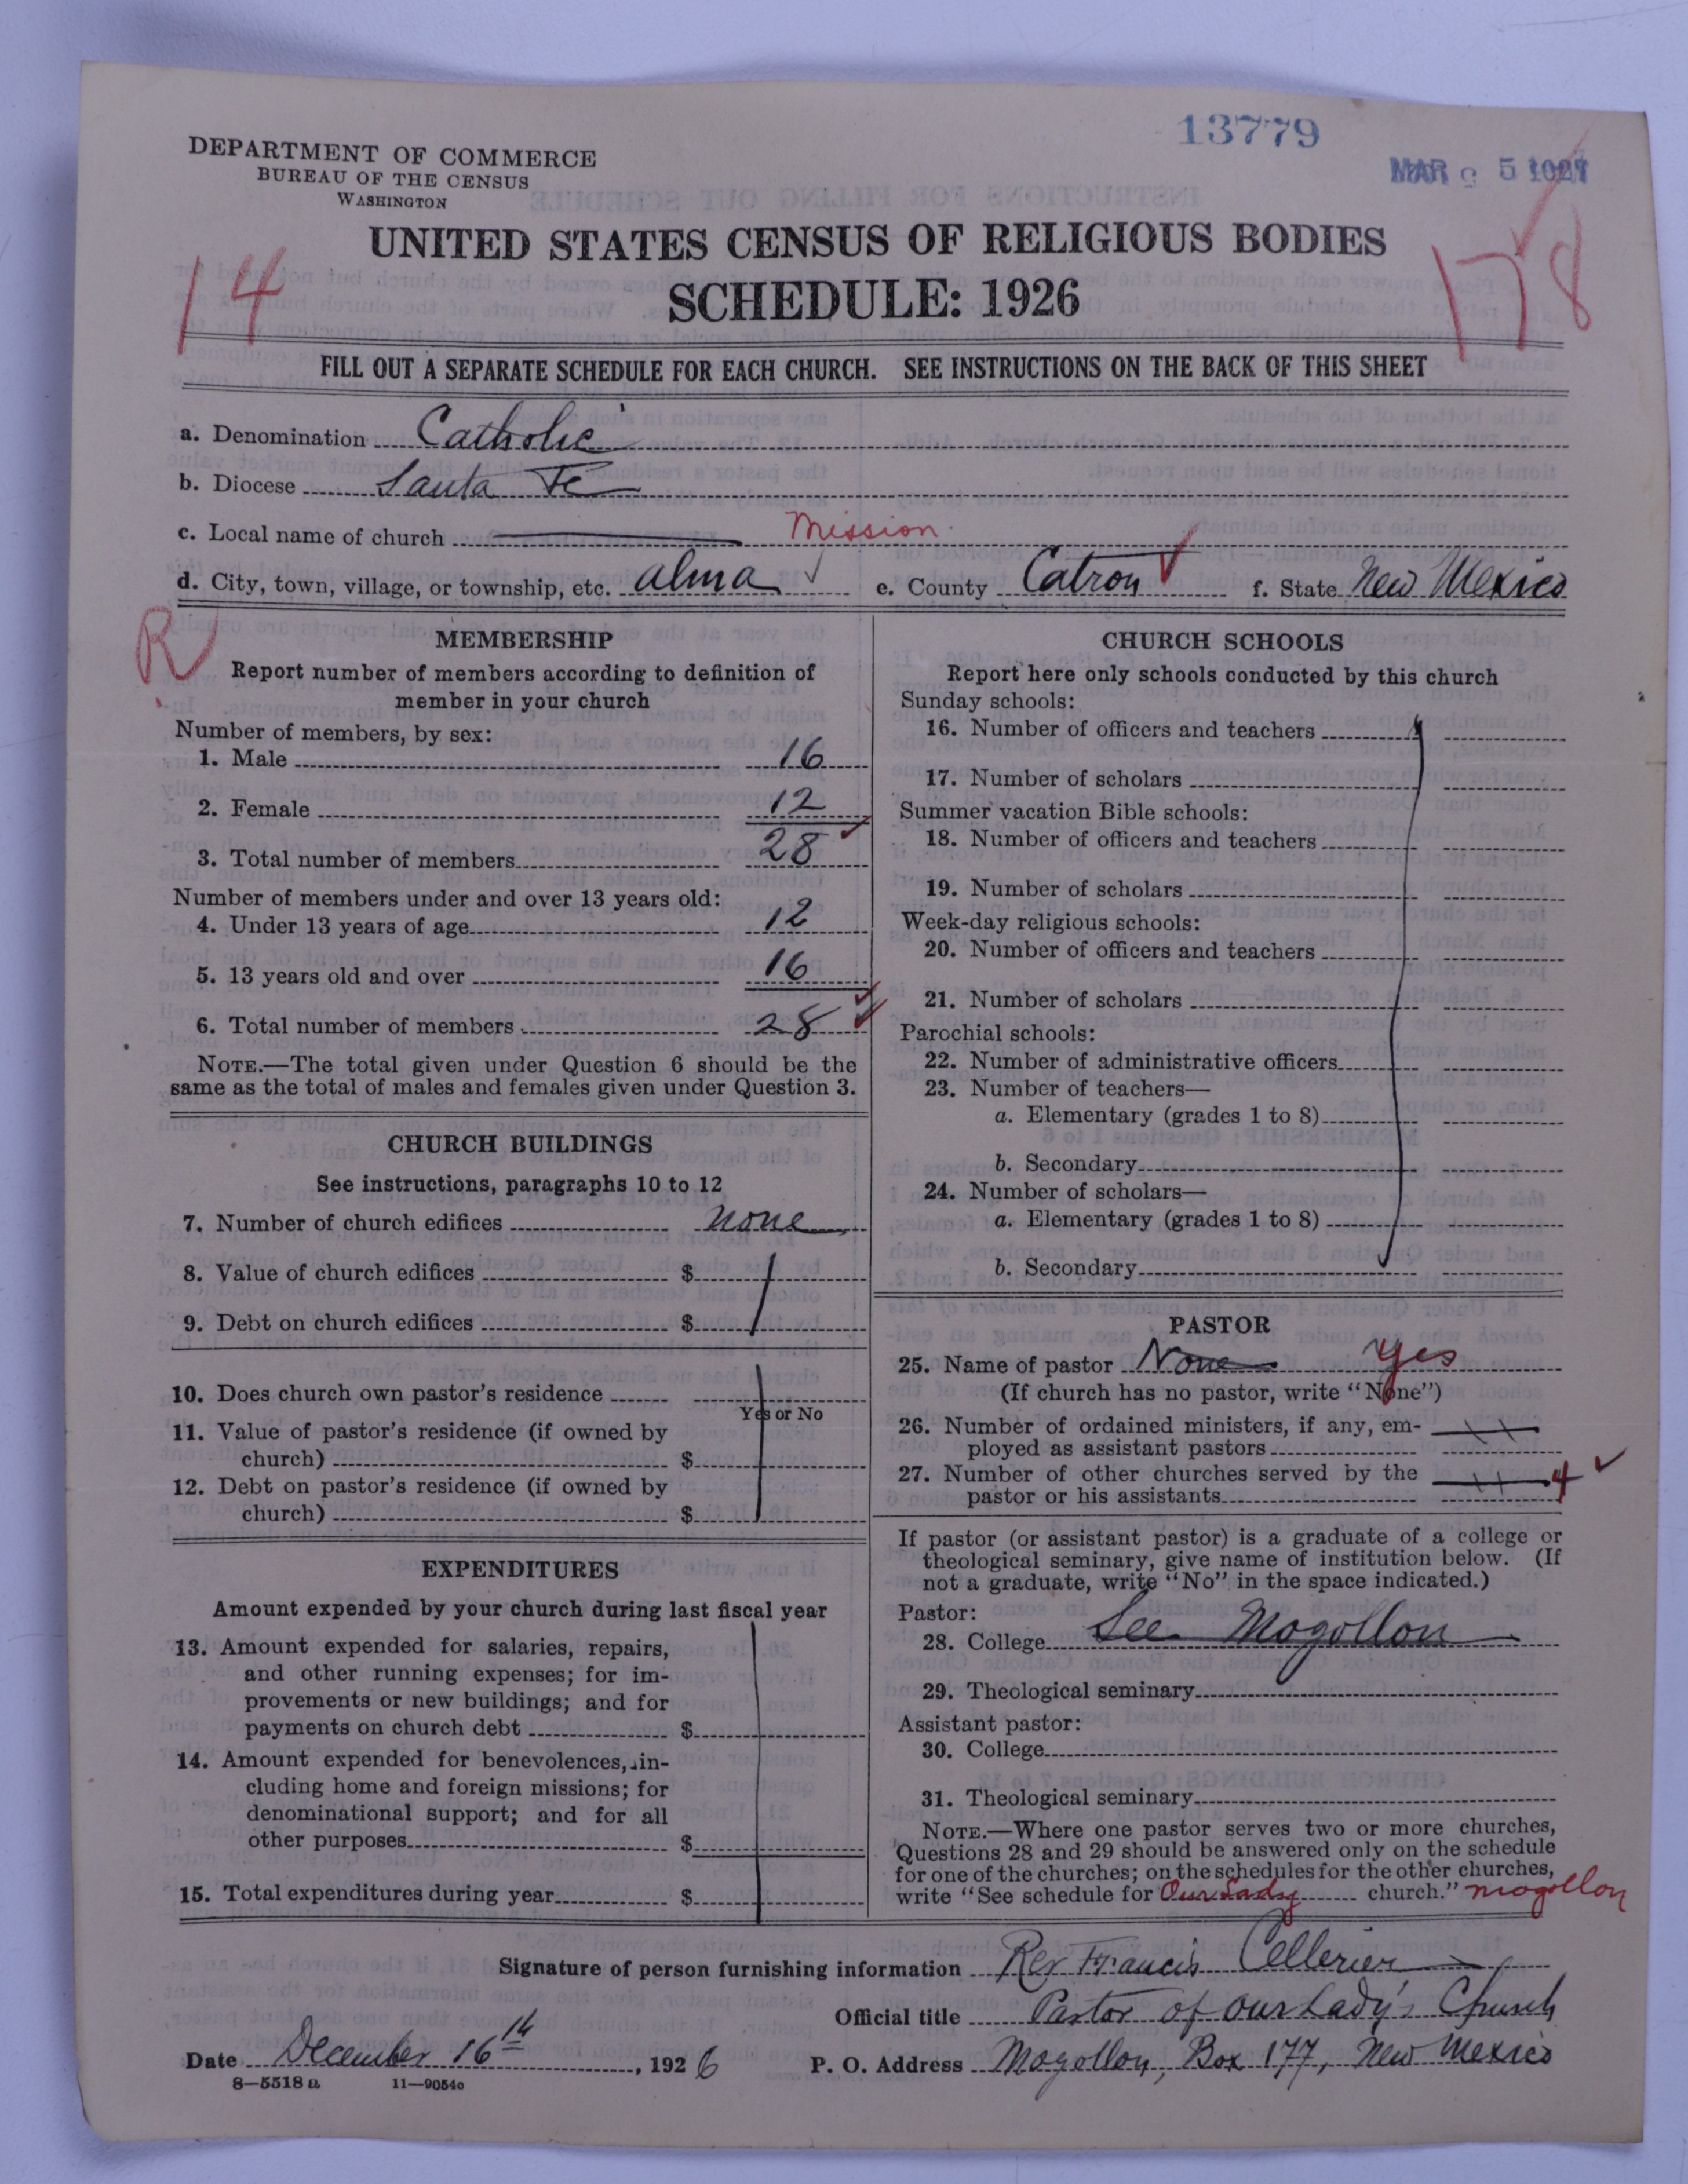 13779
DEPARTMENT OF COMMERCE
BUREAU OF THE CENSUS
WASHINGTON
MAR 5 1927
UNITED STATES CENSUS OF RELIGIOUS BODIES
SCHEDULE: 1926
14
178
FILL OUT A SEPARATE SCHEDULE FOR EACH CHURCH. SEE INSTRUCTIONS ON THE BACK OF THIS SHEET
a. Denomination Catholic
b. Diocese Santa Fe
c. Local name of church Mission
d. City, town, village, or township, etc. Alma e. County Catron f. State New Mexico
R
MEMBERSHIP
Report number of members according to definition of
member in your church
Number of members, by sex:
1. Male 16
2. Female 12
3. Total number of members 28
Number of members under and over 13 years old:
4. Under 13 years of age 12
5. 13 years old and over 16
6. Total number of members 28
NOTE.—The total given under Question 6 should be the
same as the total of males and females given under Question 3.
CHURCH BUILDINGS
See instructions, paragraphs 10 to 12
7. Number of church edifices none
8. Value of church edifices $
9. Debt on church edifices $
10. Does church own pastor's residence
Yes or No
11. Value of pastor's residence (if owned by
church) $
12. Debt on pastor's residence (if owned by
church) $
EXPENDITURES
Amount expended by your church during last fiscal year
13. Amount expended for salaries, repairs,
and other running expenses; for im-
provements or new buildings; and for
payments on church debt $
14. Amount expended for benevolences, in-
cluding home and foreign missions; for
denominational support; and for all
other purposes $
15. Total expenditures during year $
CHURCH SCHOOLS
Report here only schools conducted by this church
Sunday schools:
16. Number of officers and teachers
17. Number of scholars
Summer vacation Bible schools:
18. Number of officers and teachers
19. Number of scholars
Week-day religious schools:
20. Number of officers and teachers
21. Number of scholars
Parochial schools:
22. Number of administrative officers
23. Number of teachers—
a. Elementary (grades 1 to 8)
b. Secondary
24. Number of scholars—
a. Elementary (grades 1 to 8)
b. Secondary
PASTOR
25. Name of pastor None yes
(If church has no pastor, write "None")
26. Number of ordained ministers, if any, em-
ployed as assistant pastors
27. Number of other churches served by the
pastor or his assistants 4
If pastor (or assistant pastor) is a graduate of a college or
theological seminary, give name of institution below. (If
not a graduate, write "No" in the space indicated.)
Pastor:
28. College See Mogollon
29. Theological seminary
Assistant pastor:
30. College
31. Theological seminary
NOTE.—Where one pastor serves two or more churches,
Questions 28 and 29 should be answered only on the schedule
for one of the churches; on the schedules for the other churches,
write "See schedule for Our Lady church." Mogollon
Signature of person furnishing information Rev Francis Cellerier
Official title Pastor of Our Lady's Church
Date December 16th, 1926 P. O. Address Mogollon, Box 177, New Mexico
8—5518 a 11—9054c